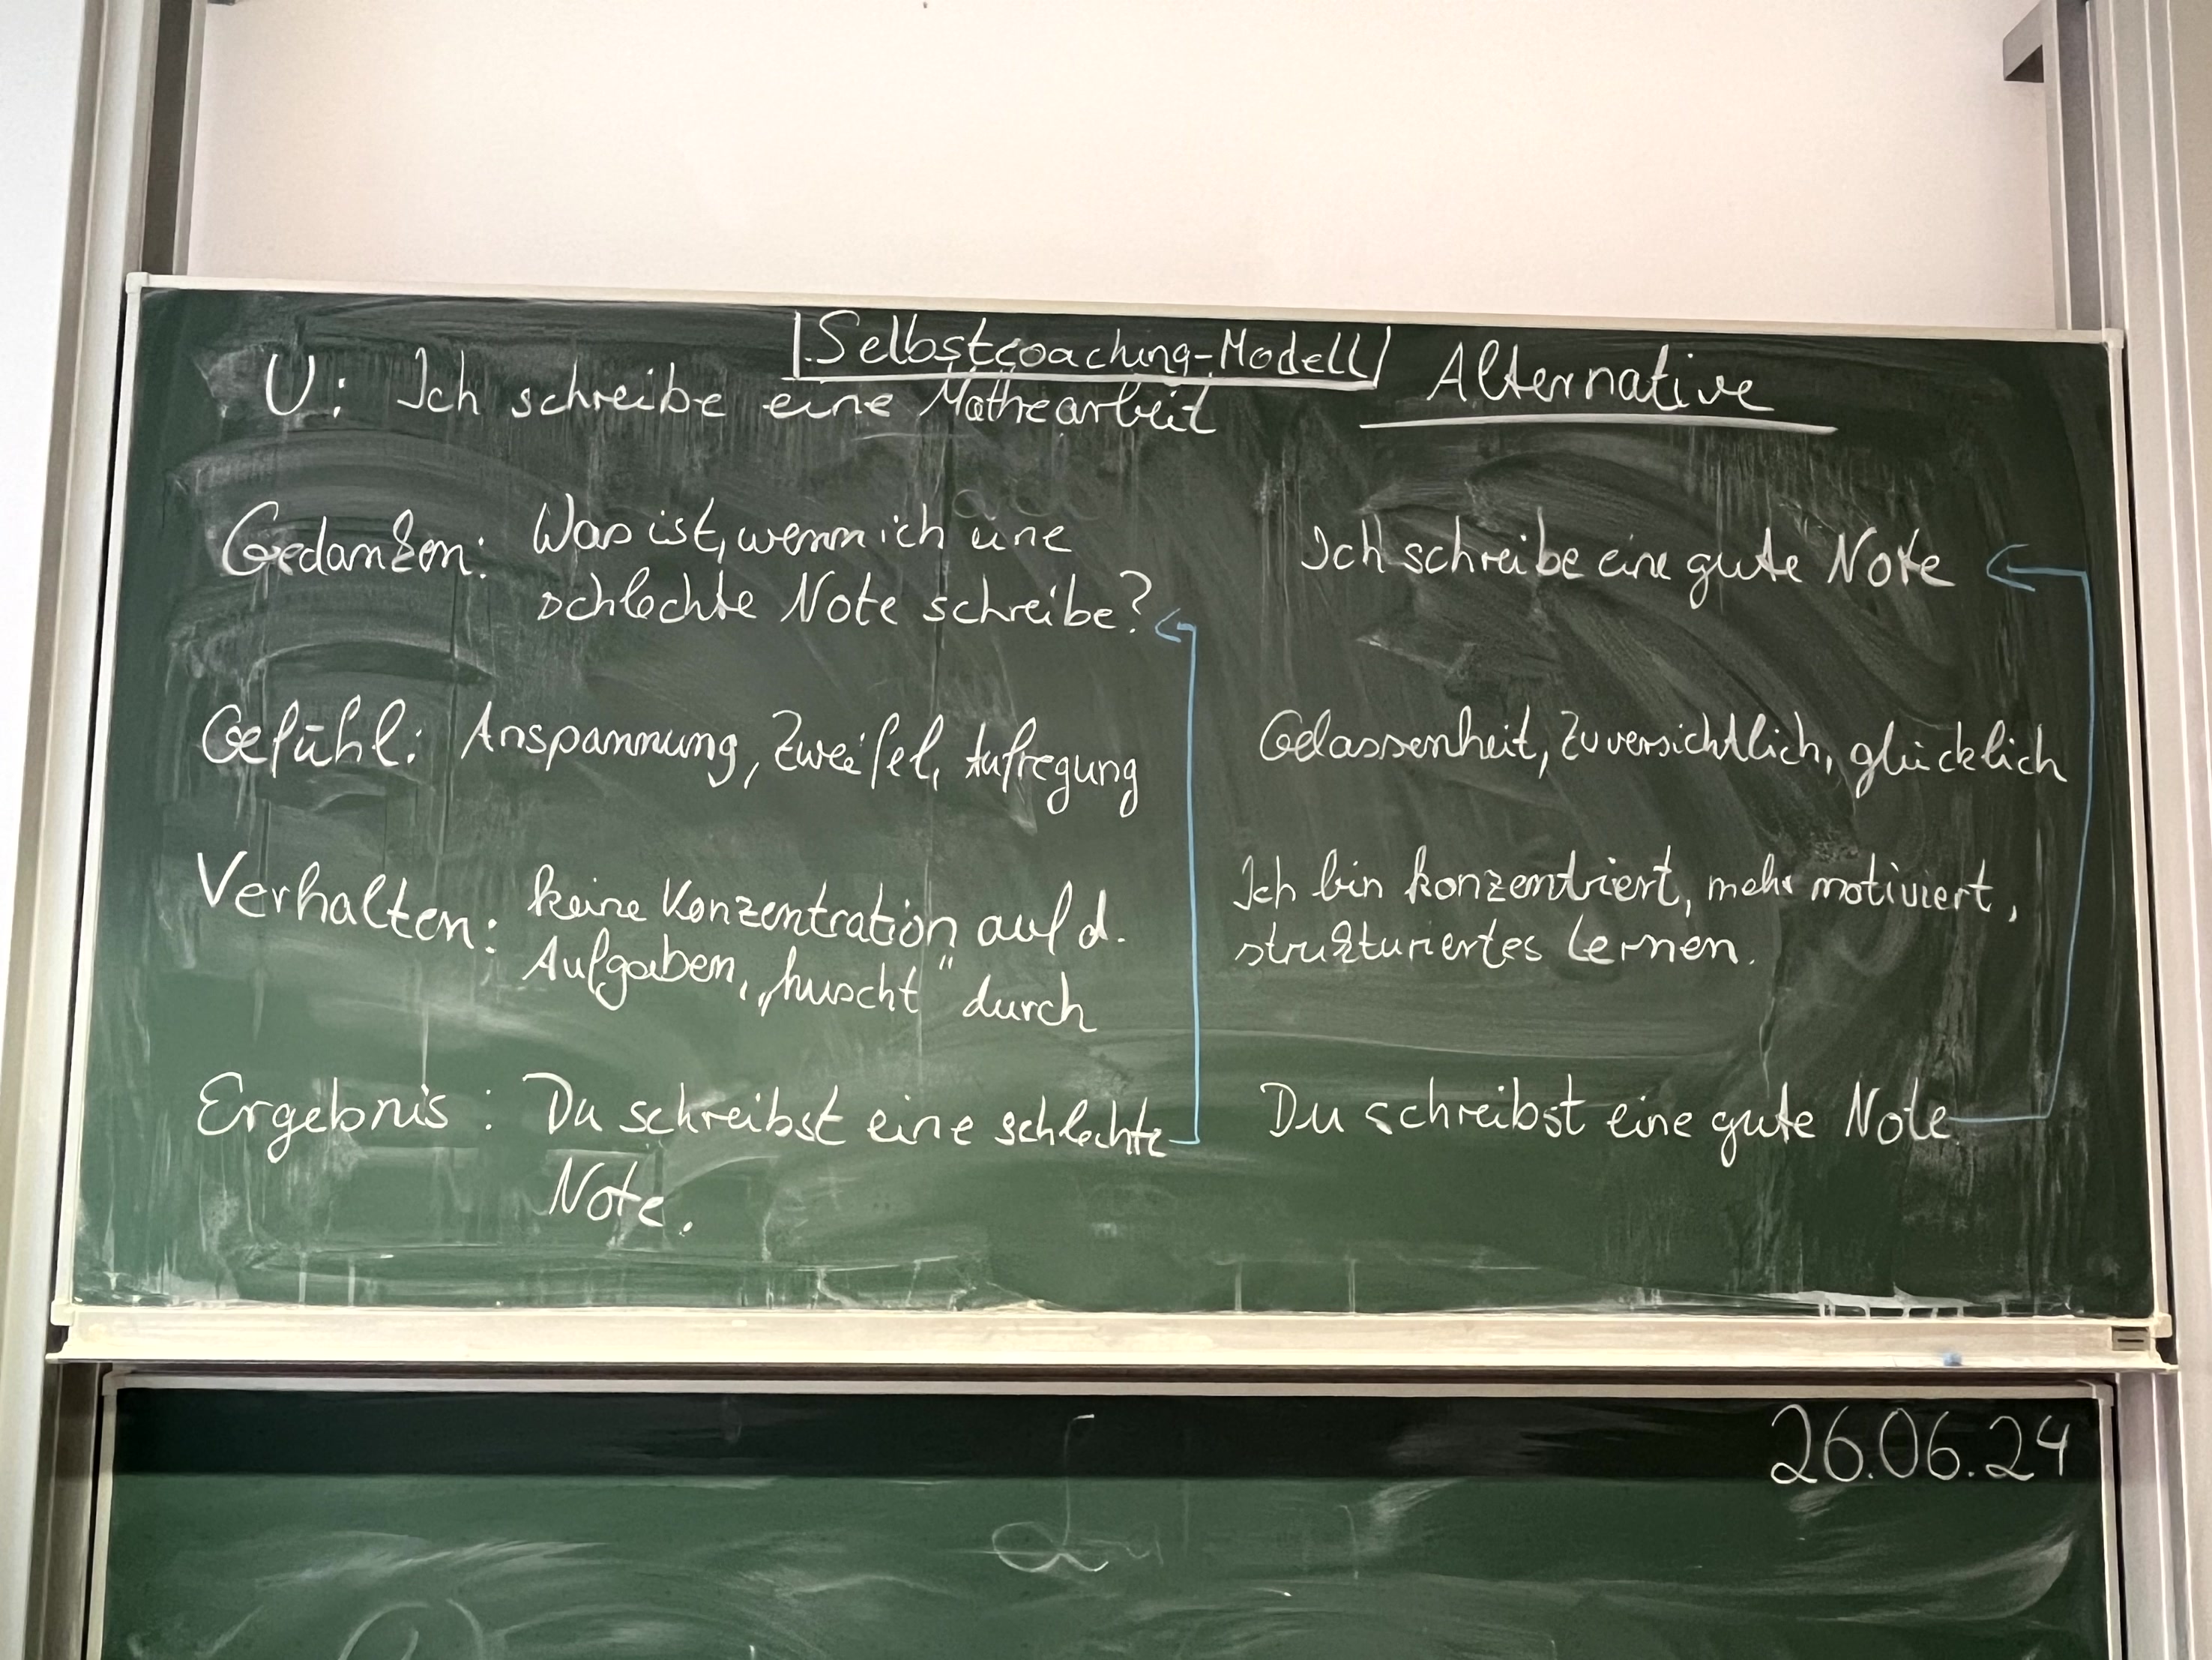 Selbstcoaching-Modell
U: Ich schreibe eine Mathearbeit
Alternative
Gedanken: Was ist, wenn ich eine
schlechte Note schreibe?
Ich schreibe eine gute Note
Gefühl: Anspannung, Zweifel, Aufregung
Gelassenheit, Zuversichtlich, glücklich
Verhalten: keine Konzentration auf d.
Aufgaben, „huscht" durch
Ich bin konzentriert, mehr motiviert,
strukturiertes Lernen.
Ergebnis: Du schreibst eine schlechte
Note.
Du schreibst eine gute Note
26.06.24